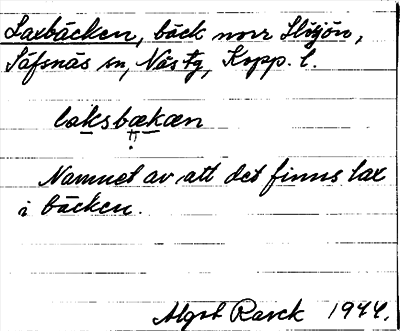 Laxbäcken, bäck norr Slisjön,
Säfsnäs sn, Näs tg, Kopp. l.
laksbækæn
Namnet av att det finns lax
i bäcken.
Algot Rarck 1944.